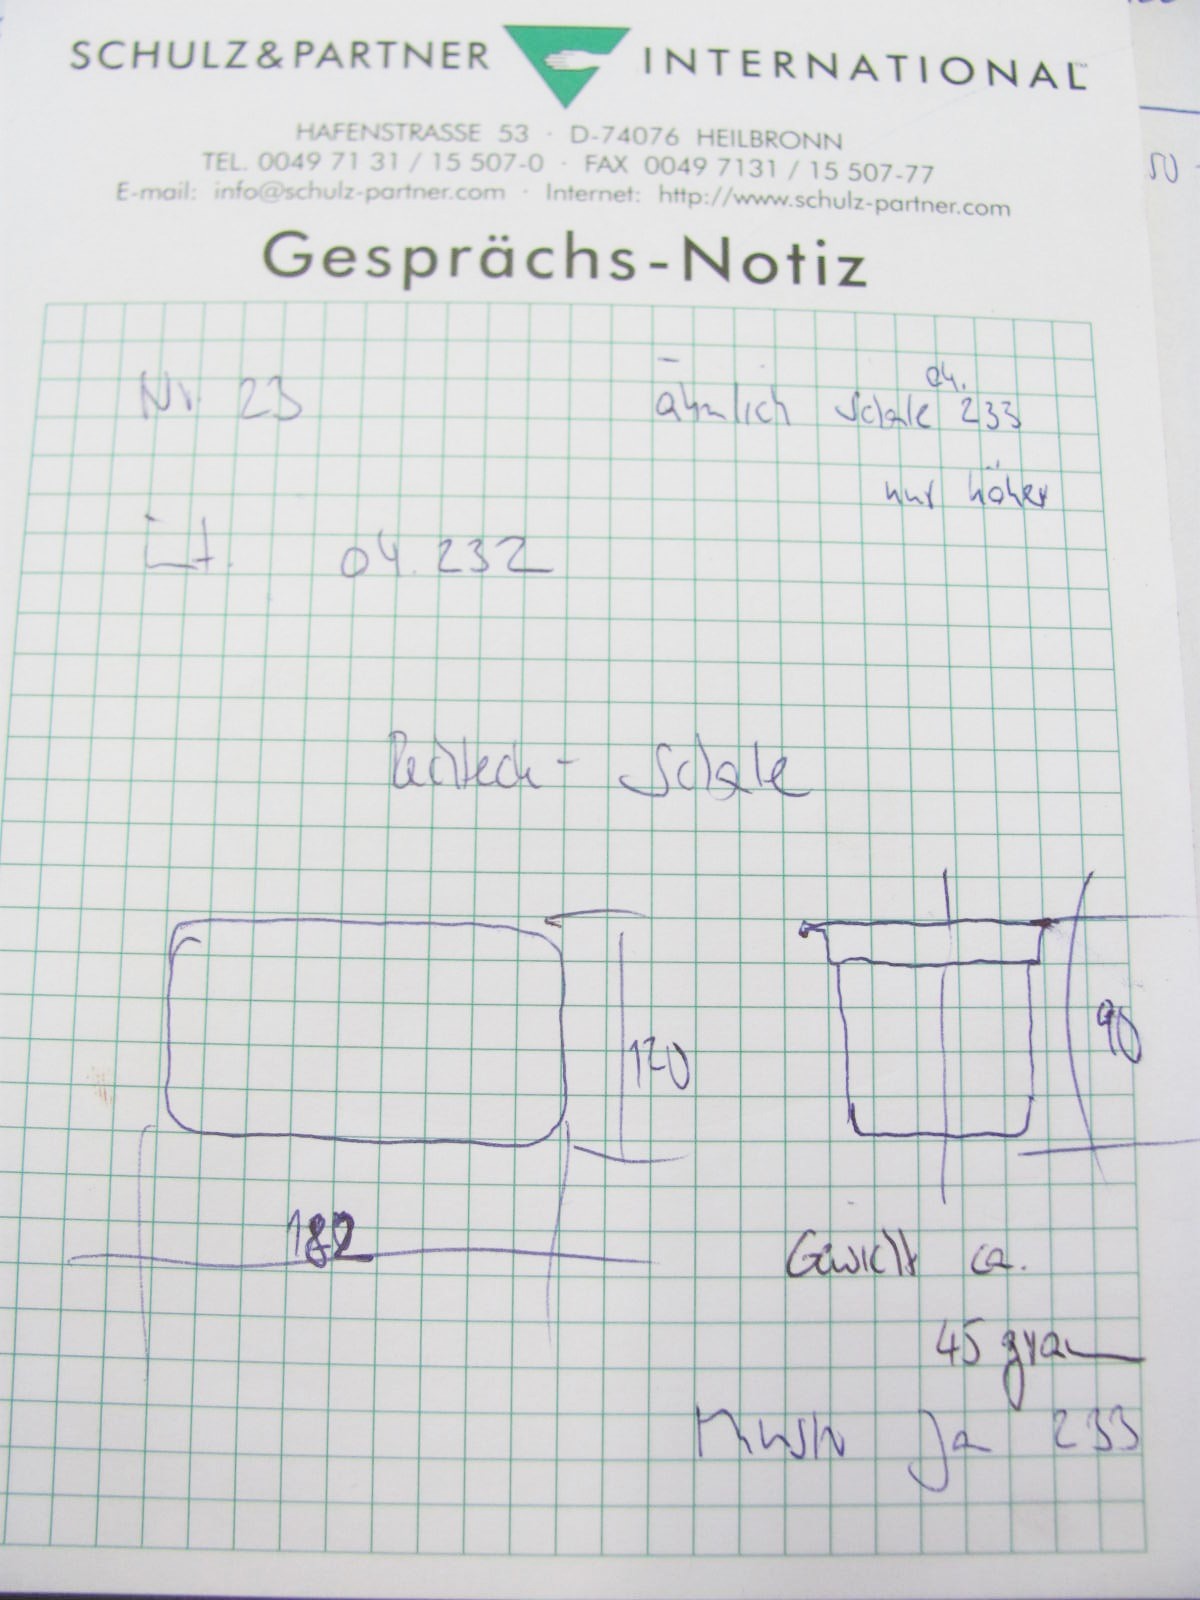 SCHULZ&PARTNER INTERNATIONAL
HAFENSTRASSE 53 · D-74076 HEILBRONN
TEL. 0049 71 31 / 15 507-0 · FAX 0049 7131 / 15 507-77
E-mail: info@schulz-partner.com · Internet: http://www.schulz-partner.com
Gesprächs-Notiz
Nr. 23
ähnlich Schale 04. 233
nur höher
int. 04.232
Rechteck- Schale
120
90
182
Gewicht ca.
45 gram
Muster Ja 233